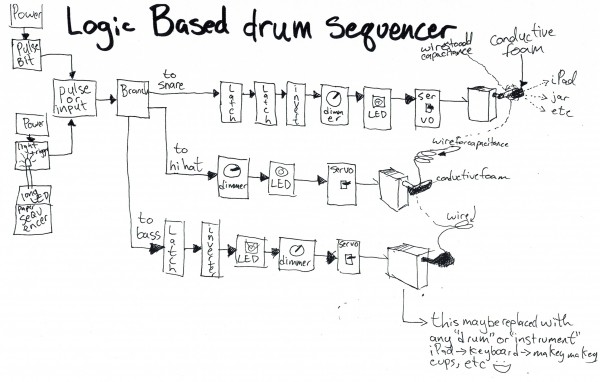 Logic Based drum Sequencer
Power
Pulse
Bit
pulse
for
input
Power
light
trigger
long LED
paper
sequencer
Branch
to
snare
Latch
Latch
invert
dimmer
LED
servo
wire to add
capacitance
conductive
foam
iPad
jar
etc
to
hihat
dimmer
LED
servo
wire for capacitance
conductive foam
to
bass
Latch
inverter
LED
dimmer
servo
wire
this may be replaced with
any "drum" or "instrument"
iPad → keyboard → makey makey
cups, etc